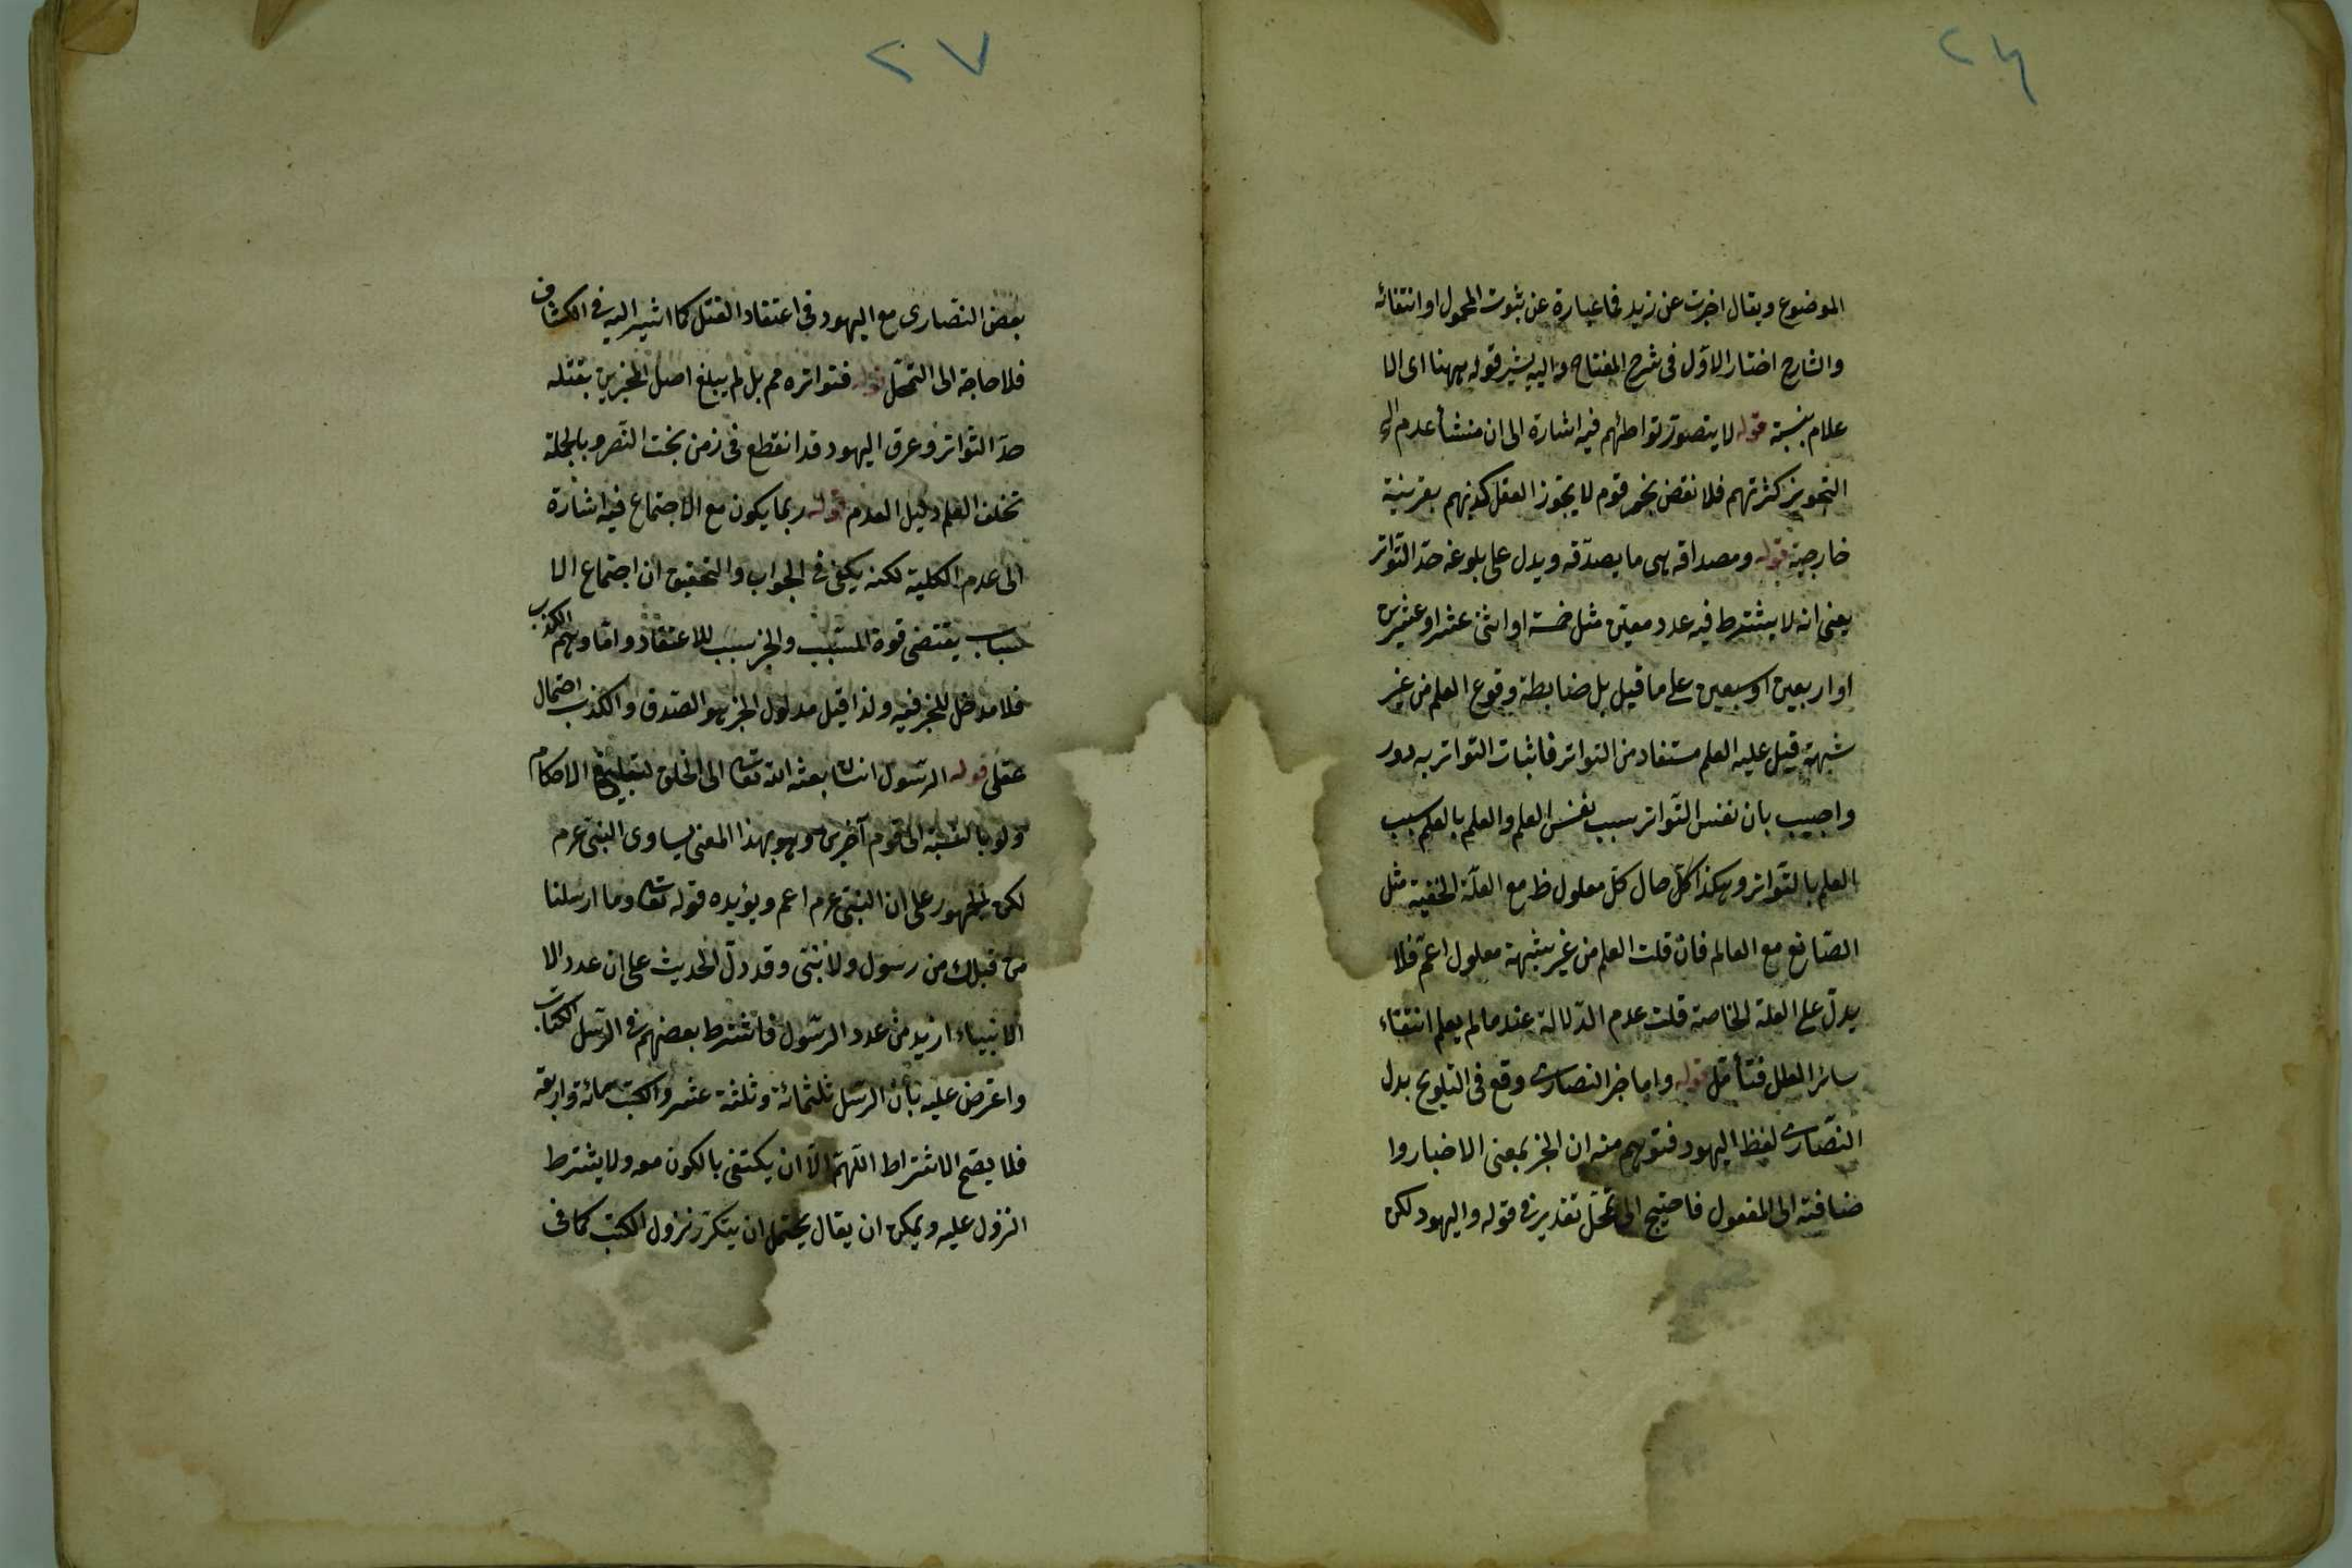 ٢٦
الموضوع ويقال اخبرت عن زيد فاعبارة عن ثبوت المحمول او انتفائه
والشارح اختار الاوّل فى شرح المفتاح واليه يشير قوله ههنا اى الا
علام بنسبة قوله لا يتصوّر تواطئهم فيه اشارة الى ان منشأ عدم
التجويز كثرتهم فلا نقض بخبر قوم لا يجوّز العقل كذبهم بقرينة
خارجية قوله ومصداقه هى ما يصدّقه ويدل على بلوغه حدّ التّواتر
يعنى انه لا يشترط فيه عدد معيّن مثل خمسة او اثنى عشر او عشرين
او اربعين او سبعين على ما قيل بل ضابطة وقوع العلم من غير
شبهة قيل عليه العلم مستفاد من التواتر فاثبات التواتر به دور
واجيب بان نفس التّواتر سبب نفس العلم والعلم بالعلم سبب
العلم بالتواتر وهكذا كلّ حال كلّ معلول ظ مع العلّة الخفية مثل
الصّانع مع العالم فان قلت العلم من غير شبهة معلول اعمّ فلا
يدلّ على العلة الخاصة قلت عدم الدّلالة عند ما لم يعلم انتفاء
سائر العلل فتأمّل قوله واما خبر النصارى وقع فى التلويح بدل
النّصارى لفظ اليهود فتوهم منه ان الخبر بمعنى الاخبار وا
ضافته الى المفعول فاحتيج الى تمحّل تقدير فى قوله واليهود لكن
٢٧
بعض النّصارى مع اليهود فى اعتقاد القتل كما اشير اليه فى الكشاف
فلا حاجة الى التمحّل قوله فتواتره مم بل لم يبلغ اصل المخبرين بقتله
حدّ التّواتر وعرق اليهود قد انقطع فى زمن بخت النّصر وبالجملة
تخلف العلم دليل العدم قوله ربما يكون مع الاجتماع فيه اشارة
الى عدم الكلية لكنه يكفى فى الجواب والتحقيق ان اجتماع الا
سباب يقتضى قوة المسبّب والخبر سبب للاعتقاد واما وهم الكذب
فلا مدخل للخبر فيه ولذا قيل مدلول الخبر هو الصّدق والكذب احتمال
عقلى قوله الرّسول انسان بعثه الله تعالى الى الخلق لتبليغ الاحكام
ولو بالنسبة الى قوم آخرين وهو بهذا المعنى يساوى النبىّ عم
لكن الجمهور على ان النبىّ عم اعم ويؤيده قوله تعالى وما ارسلنا
من قبلك من رسول ولا نبىّ وقد دلّ الحديث على ان عدد الا
الانبياء ازيد من عدد الرّسول فاشترط بعضهم فى الرّسل الكتاب
واعترض عليه بأن الرّسل ثلثمائة وثلثة عشر والكتب مائة واربعة
فلا يصّح الاشتراط اللّهمّ الّا ان يكتفى بالكون معه ولا يشترط
النزول عليه ويمكن ان يقال يحتمل ان يتكرّر نزول الكتب كما فى